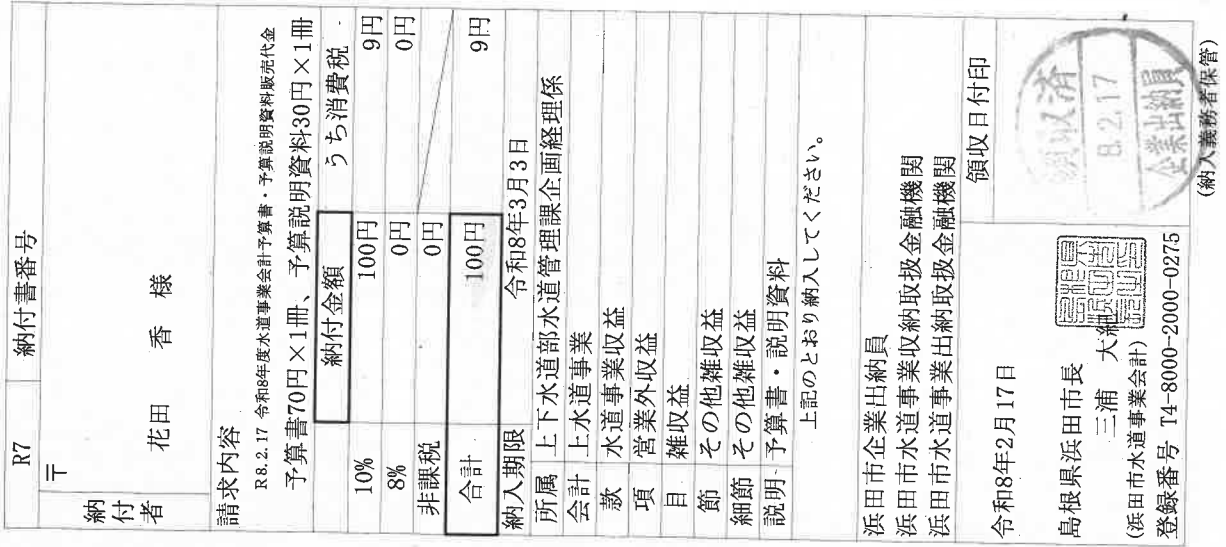 R7 納付書番号
納付者
〒
花田 香 様
請求内容
R8.2.17 令和8年度水道事業会計予算書・予算説明資料販売代金
予算書70円×1冊、予算説明資料30円×1冊
納付金額 うち消費税
10% 100円 9円
8% 0円 0円
非課税 0円
合計 100円 9円
納入期限 令和8年3月3日
所属 上下水道部水道管理課企画経理係
会計 上水道事業
款 水道事業収益
項 営業外収益
目 雑収益
節 その他雑収益
細節 その他雑収益
説明 予算書・説明資料
上記のとおり納入してください。
浜田市企業出納員
浜田市水道事業収納取扱金融機関
浜田市水道事業出納取扱金融機関
令和8年2月17日
島根県浜田市長
三浦 大紀
(浜田市水道事業会計)
登録番号 T4-8000-2000-0275
領収日付印
領収済
8.2.17
企業出納員
(納入義務者保管)